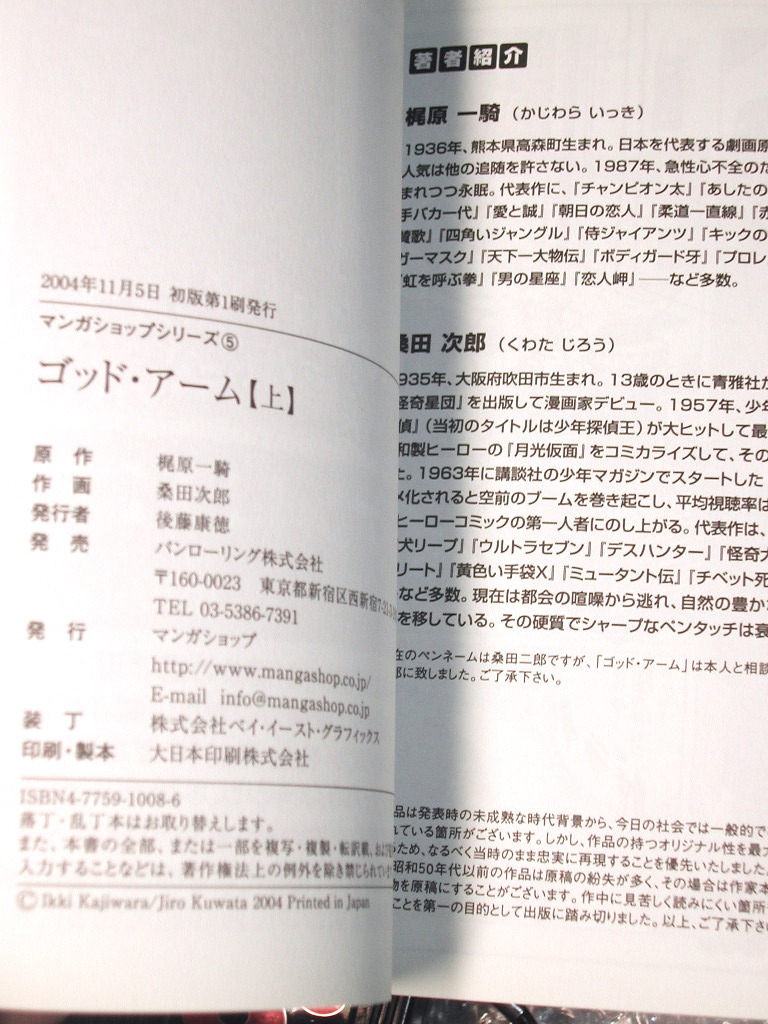 2004年11月5日 初版第1刷発行
マンガショップシリーズ⑤
ゴッド・アーム【上】
原 作 梶原一騎
作 画 桑田次郎
発行者 後藤康徳
発 売 パンローリング株式会社
〒160-0023 東京都新宿区西新宿7-
TEL 03-5386-7391
発 行 マンガショップ
http://www.mangashop.co.jp/
E-mail info@mangashop.co.jp
装 丁 株式会社ベイ・イースト・グラフィックス
印刷・製本 大日本印刷株式会社
ISBN4-7759-1008-6
落丁・乱丁本はお取り替えします。
また、本書の全部、または一部を複写・複製・転訳載、および
入力することなどは、著作権法上の例外を除き禁じられています
©Ikki Kajiwara/Jiro Kuwata 2004 Printed in Japan
著者紹介
梶原 一騎（かじわら いっき）
1936年、熊本県高森町生まれ。日本を代表する劇画原
人気は他の追随を許さない。1987年、急性心不全のた
まれつつ永眠。代表作に、『チャンピオン太』『あしたの
手バカ一代』『愛と誠』『朝日の恋人』『柔道一直線』『赤
賛歌』『四角いジャングル』『侍ジャイアンツ』『キックの
ガーマスク』『天下一大物伝』『ボディガード牙』『プロレ
『虹を呼ぶ拳』『男の星座』『恋人岬』――など多数。
桑田 次郎（くわた じろう）
935年、大阪府吹田市生まれ。13歳のときに青雅社か
怪奇星団』を出版して漫画家デビュー。1957年、少年
偵』（当初のタイトルは少年探偵王）が大ヒットして最
和製ヒーローの『月光仮面』をコミカライズして、その
た。1963年に講談社の少年マガジンでスタートした
メ化されると空前のブームを巻き起こし、平均視聴率は
ヒーローコミックの第一人者にのし上がる。代表作は、
犬リープ』『ウルトラセブン』『デスハンター』『怪奇大
リート』『黄色い手袋X』『ミュータント伝』『チベット死
など多数。現在は都会の喧噪から逃れ、自然の豊か
を移している。その硬質でシャープなペンタッチは衰
在のペンネームは桑田二郎ですが、「ゴッド・アーム」は本人と相談
郎に致しました。ご了承下さい。
品は発表時の未成熟な時代背景から、今日の社会では一般的で
れている箇所がございます。しかし、作品の持つオリジナル性を最大
ため、なるべく当時のまま忠実に再現することを優先いたしました。
昭和50年代以前の作品は原稿の紛失が多く、その場合は作家本
物を原稿にすることがございます。作中に見苦しく読みにくい箇所
ことを第一の目的として出版に踏み切りました。以上、ご了承下さ